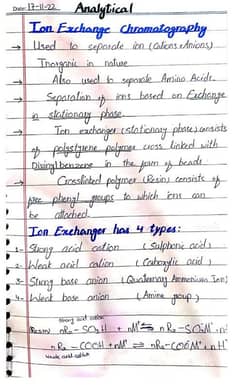 Date: 17-11-22
Analytical
Ion Exchange Chromatography
→ Used to separate ion (Cations & Anions)
Inorganic in nature
→ Also used to separate Amino Acids.
→ Separation of ions based on Exchange
in stationary phase.
→ Ion exchanger (stationary phase) consists
of polystyrene polymer cross linked with
benzene in the form of beads.
→ Crosslinked polymer (Resin) consists of
free phenyl groups to which ions can
be attached.
Ion Exchanger has 4 types:
1- Strong acid cation (Sulphonic acid)
2- Weak acid cation (Carboxylic acid)
3- Strong base anion (Quaternary Ammonium Ion)
4- Weak base anion (Amine group)
Strong acid cation
Resin nRz-SO3H + nM+ ⇌ nRz-SO3M+
nRz-COOH + nM+ ⇌ nRz-COOM+ + nH+
Weak acid cation